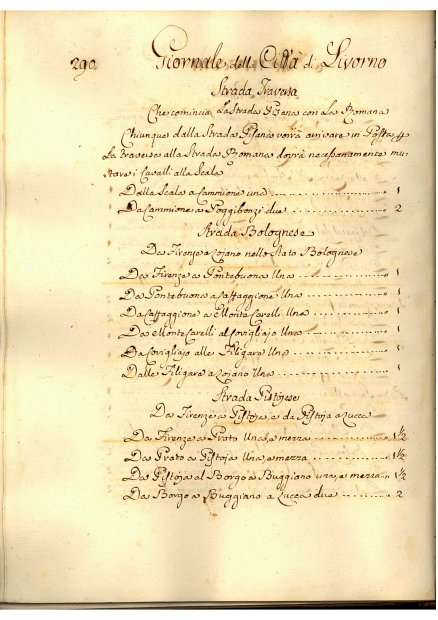 290 Giornale della Città di Livorno
Strada Traversa
Che comincia La Strada Pisana con La Romana
Chiunque dalla Strada Pisana vorrà arrivare in Posta p
La traversa alla Strada Romana dovrà necessariamente mu-
tare i Cavalli alla Scala
Dalla Scala a Cammione una 1
Da Cammione a Poggibonzi due 2
Strada Bolognese
Da Firenze a Lojano nello Stato Bolognese
Da Firenze a Pontebuona Una 1
Da Pontebuona a Caffaggiono Una 1
Da Caffaggiono a Monte Carelli Una 1
Da Monte Carelli al Covigliajo Una 1
Da Covigliajo alle Filigare Una 1
Dalle Filigare a Lojano Una 1
Strada Pistojese
Da Firenze a Pistoja, e da Pistoja a Lucca
Da Firenze a Prato Una, e mezza 1½
Da Prato a Pistoja Una, e mezza 1½
Da Pistoja al Borgo a Buggiano una, e mezza 1½
Da Borgo a Buggiano a Lucca due 2